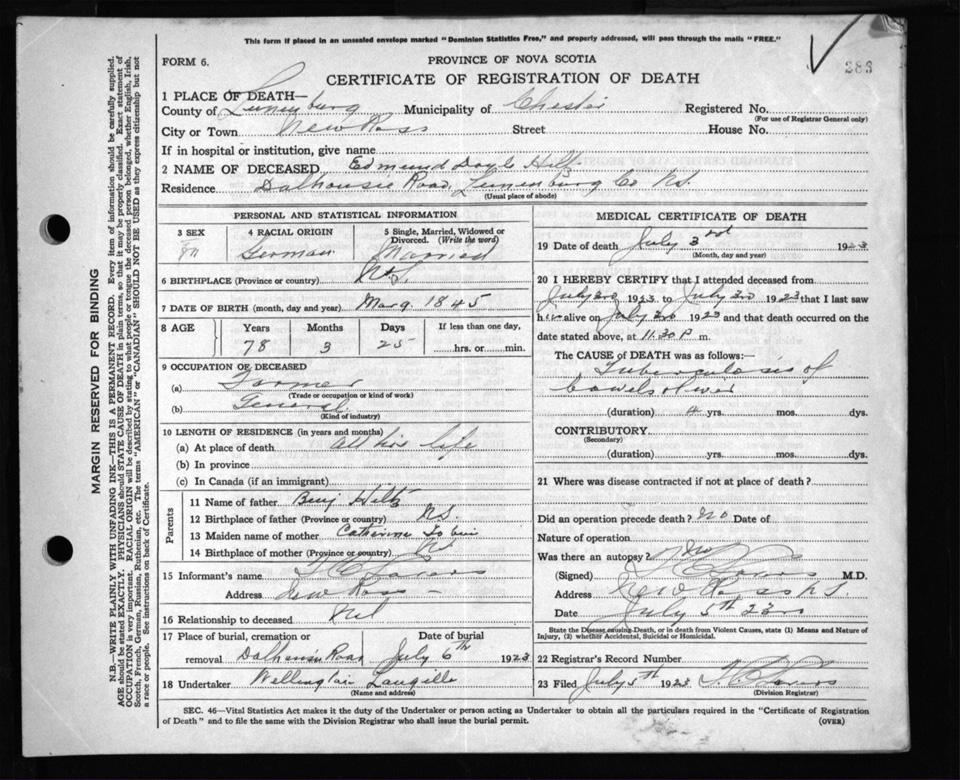 This form if placed in an unsealed envelope marked "Dominion Statistics Free," and properly addressed, will pass through the mails "FREE."
283
FORM 6.
PROVINCE OF NOVA SCOTIA
CERTIFICATE OF REGISTRATION OF DEATH
1 PLACE OF DEATH—
County of Lunenburg Municipality of Chester Registered No.
(For use of Registrar General only)
City or Town New Ross Street House No.
If in hospital or institution, give name
2 NAME OF DECEASED Edmund Doyle Hiltz
Residence Dalhousie Road Lunenburg Co N.S.
(Usual place of abode)
PERSONAL AND STATISTICAL INFORMATION
3 SEX 4 RACIAL ORIGIN 5 Single, Married, Widowed or Divorced. (Write the word)
M German Married
6 BIRTHPLACE (Province or country) N.S.
7 DATE OF BIRTH (month, day and year) Mar 9. 1845
8 AGE Years Months Days If less than one day,
78 3 25 hrs. or min.
9 OCCUPATION OF DECEASED
(a) Farmer
(Trade or occupation or kind of work)
(b) General
(Kind of industry)
10 LENGTH OF RESIDENCE (in years and months)
(a) At place of death All his life
(b) In province
(c) In Canada (if an immigrant)
Parents
11 Name of father Benj Hiltz
12 Birthplace of father (Province or country) N.S.
13 Maiden name of mother Catherine Tobin
14 Birthplace of mother (Province or country) N.S.
15 Informant's name
Address New Ross
16 Relationship to deceased Nil
17 Place of burial, cremation or removal Dalhousie Road Date of burial July 6th 1923
18 Undertaker Wellington Langille
(Name and address)
MEDICAL CERTIFICATE OF DEATH
19 Date of death July 3rd 1923
(Month, day and year)
20 I HEREBY CERTIFY that I attended deceased from
July 3rd 1923 to July 3rd 1923 that I last saw
him alive on July 3rd 1923 and that death occurred on the
date stated above, at 11.30 P m.
The CAUSE of DEATH was as follows:—
Tuberculosis of
bowels
(duration) yrs. mos. dys.
CONTRIBUTORY
(Secondary)
(duration) yrs. mos. dys.
21 Where was disease contracted if not at place of death?
Did an operation precede death? No Date of
Nature of operation
Was there an autopsy? No
(Signed) M.D.
Address New Ross N.S.
Date July 5th 23
State the Disease causing Death, or in death from Violent Causes, state (1) Means and Nature of Injury, (2) whether Accidental, Suicidal or Homicidal.
22 Registrar's Record Number
23 Filed July 5th 1923
(Division Registrar)
SEC. 46—Vital Statistics Act makes it the duty of the Undertaker or person acting as Undertaker to obtain all the particulars required in the "Certificate of Registration
of Death" and to file the same with the Division Registrar who shall issue the burial permit.
(OVER)
MARGIN RESERVED FOR BINDING
N.B.—WRITE PLAINLY WITH UNFADING INK—THIS IS A PERMANENT RECORD. Every item of information should be carefully supplied.
AGE should be stated EXACTLY. PHYSICIANS should STATE CAUSE OF DEATH in plain terms, so that it may be properly classified. Exact statement of
OCCUPATION is very important. RACIAL ORIGIN will be described by stating to what people or tongue the deceased person belonged, whether English, Irish,
Scotch, French, German, Russian, Ruthenian, etc. The terms "AMERICAN" or "CANADIAN" SHOULD NOT BE USED as they express citizenship but not
a race or people. See instructions on back of Certificate.